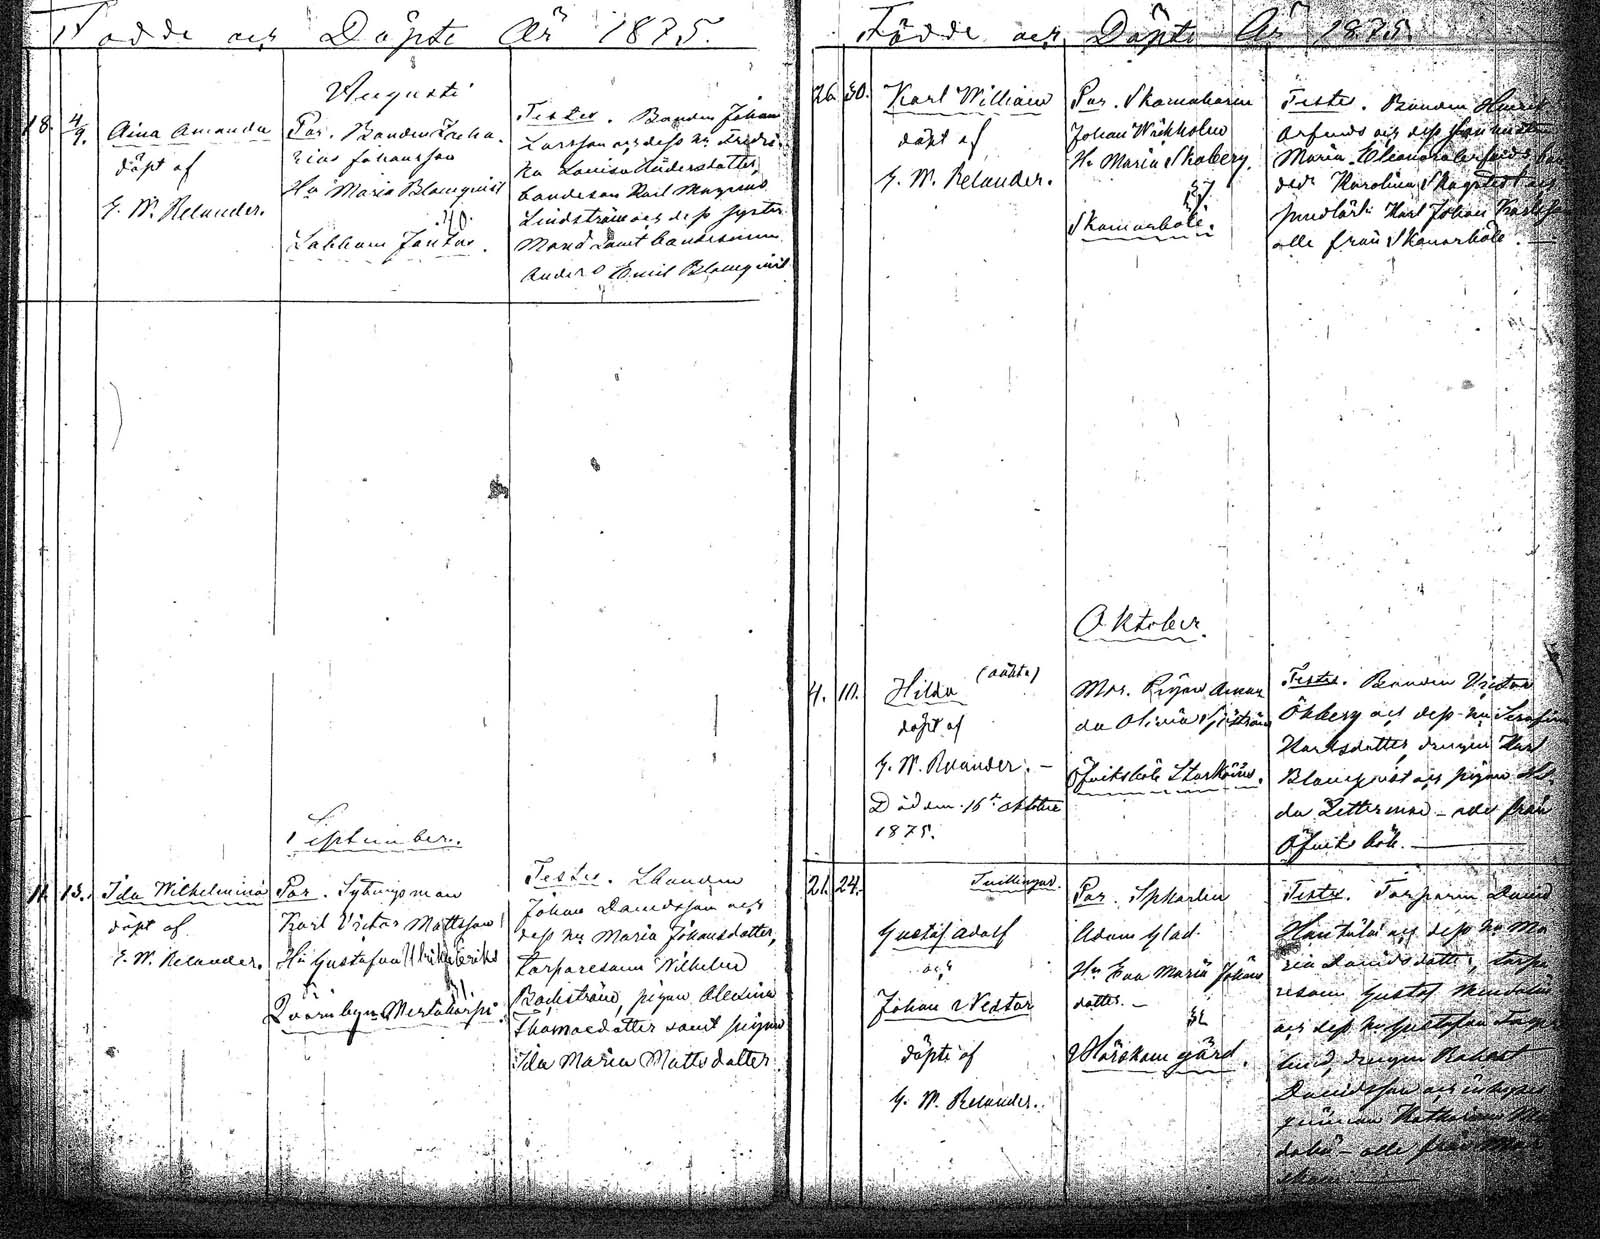 Födde och Döpte År 1875.
Augusti
18. 4/9. Aina Amanda
döpt af
E. W. Relander.
Par. Bonden Zacha-
rias Johansson
Hu Maria Blomqvist
40.
Labbom Jäntas.
Testes. Bonden Johan
Larsson och dess hu Fredri-
ka Lovisa Andersdotter,
bondeson Karl Magnus
Lindström och dess syster
Amanda samt bondesonen
Anders Emil Blomqvist
September.
11. 13. Ida Wilhelmina
döpt af
E. W. Relander.
Par. Sytningsman
Karl Victor Mattsson
Hu Gustafva Ulrika Eriks
31
Qvarnbyn Mertakorpi.
Testes.
Johan Davidsson och
dess hu Maria Johansdotter,
torparesonen Wilhelm
Backström, pigan Alexina
Thomasdotter samt pigan
Ida Maria Mattsdotter
Födde och Döpte År 1875.
26. 30. Karl William
döpt af
E. W. Relander.
Par. Skomakaren
Johan Wickholm
Hu Maria Skoberg.
37
Skomarböle.
Testes. Bonden Henrik
Arfvids och dess
Maria Eleonora
Karolina
Karl Johan
alle från Skomarböle.
Oktober.
4. 10. Hilda (oäkta)
döpt af
E. W. Relander.
Död den 16de Oktober
1875.
Mor. Pigan Aman
da Olivia Sjöström
Öfvitsböle Starkoms.
Testes. Bonden Victor
Ökberg och dess hu Serafina
Karlsdotter, drengen Karl
Blomqvist och pigan Hil-
da Zetterman – alle från
Öfvitsböle.
21. 24. Tvillingar.
Gustaf Adolf
och
Johan Nestor
döpte af
E. W. Relander.
Par. Spkarlen
Adam Glad.
Hu Eva Maria Johans
dotter.
32
Märskom gård.
Testes. Torparen David
och dess hu Ma-
ria Davidsdotter, torpa-
resonen Gustaf
och dess hu Gustafva Fager
lund, drengen Robert
Davidsson och inhyses
qvinnan Katharina
– alle från Mär-
skom